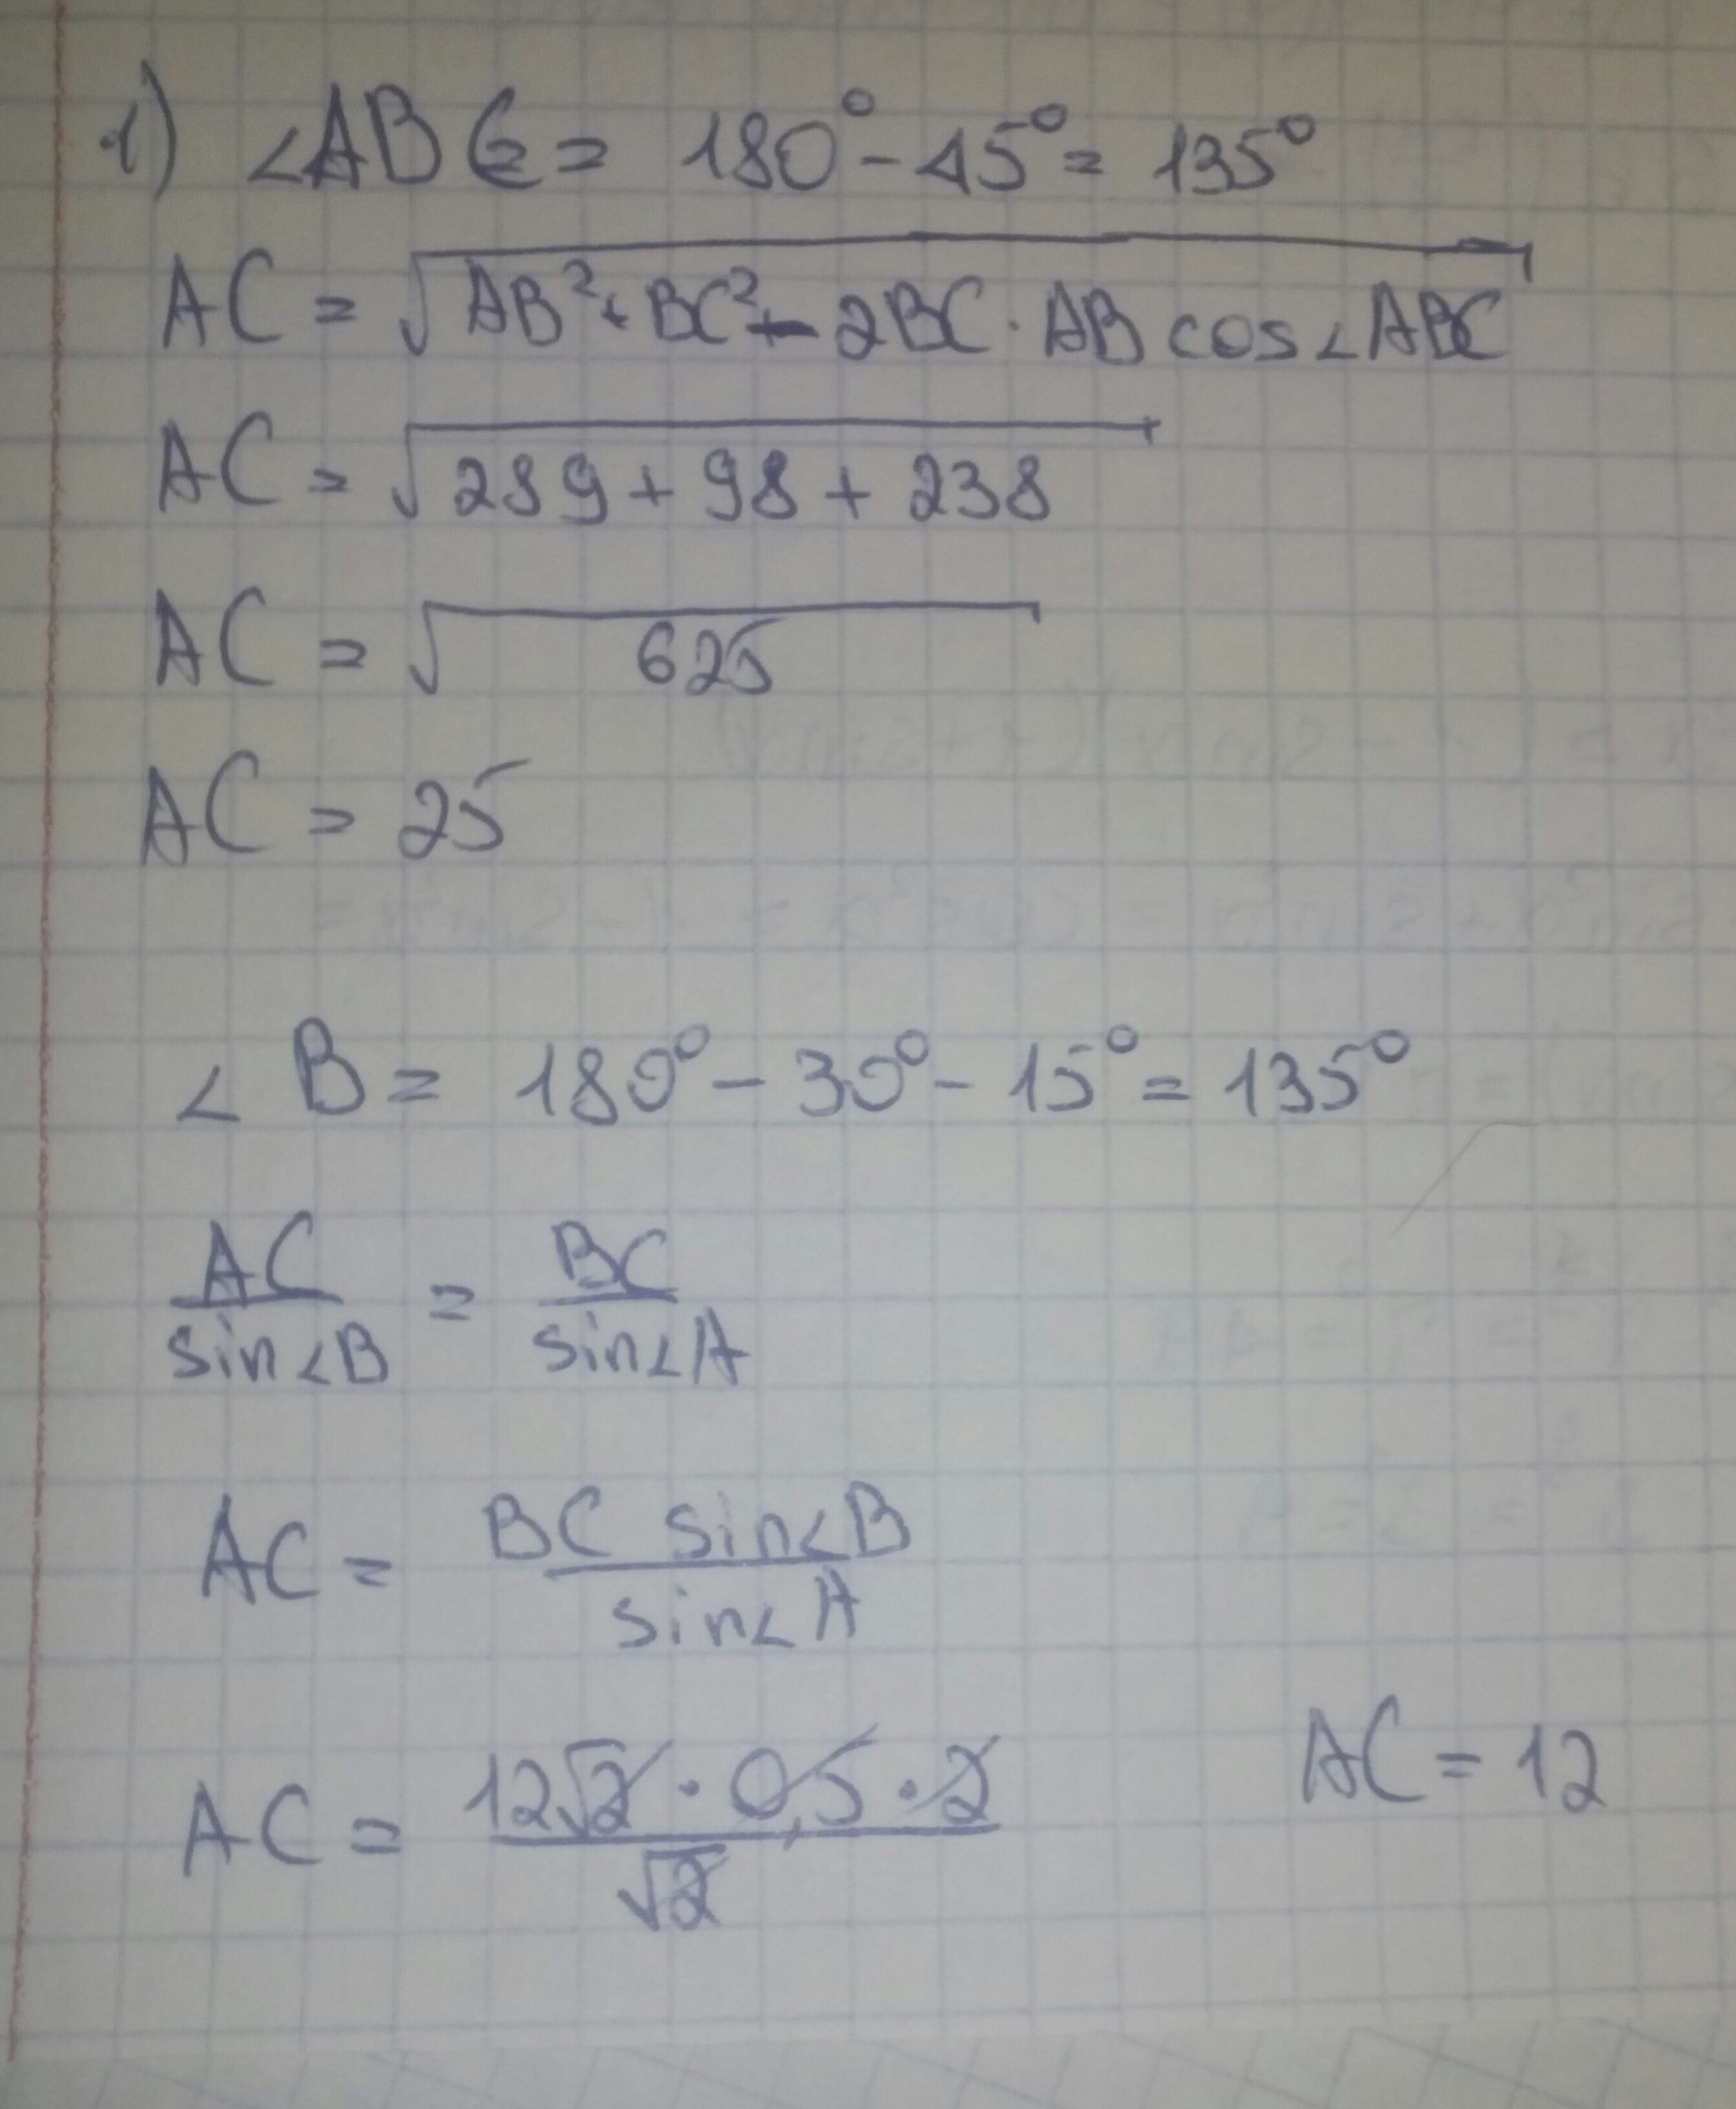 1) ∠ABC = 180° - 45° = 135°
AC = √(AB² + BC² - 2BC · AB cos∠ABC)
AC = √(289 + 98 + 238)
AC = √625
AC = 25
∠B = 180° - 30° - 15° = 135°
AC/sin∠B = BC/sin∠A
AC = BC sin∠B / sin∠A
AC = 12√2 · 0,5 · 2 / √2 AC = 12